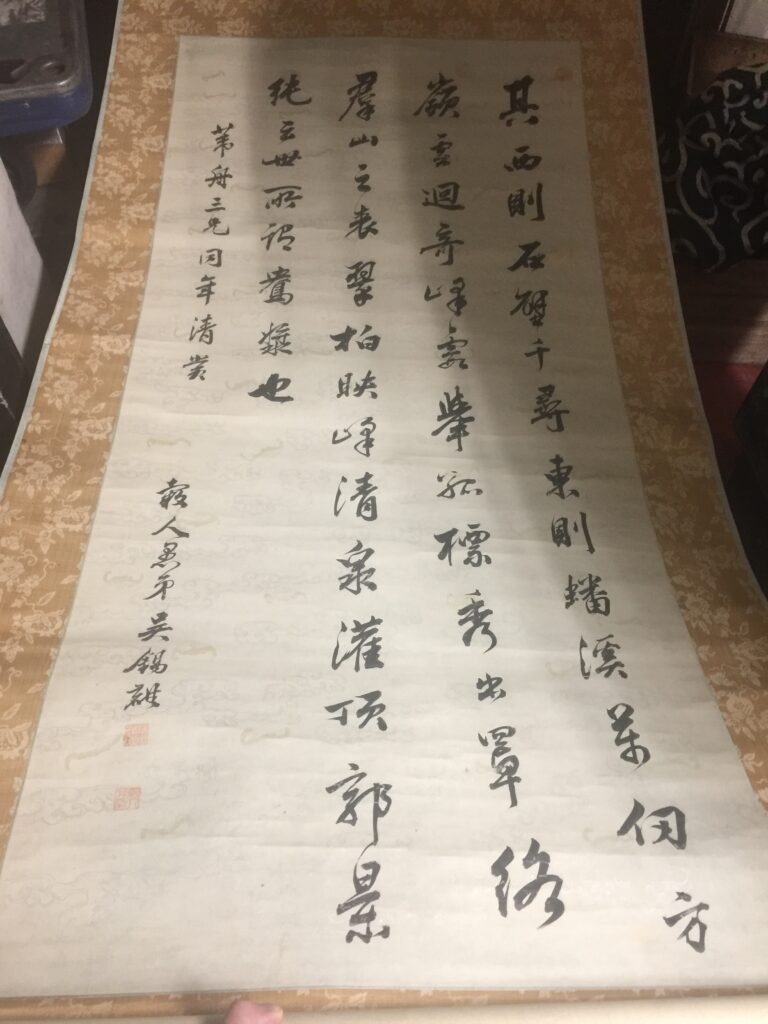 其西則石壁千尋東則蟠溪萬仞方
嶺雲迴奇峰霞舉孤標秀出罩絡
羣山之表翠柏映峰清泉灌頂郭景
純云世所謂鴦漿也
葦舟三兄同年清賞
穀人愚弟吳錫麒